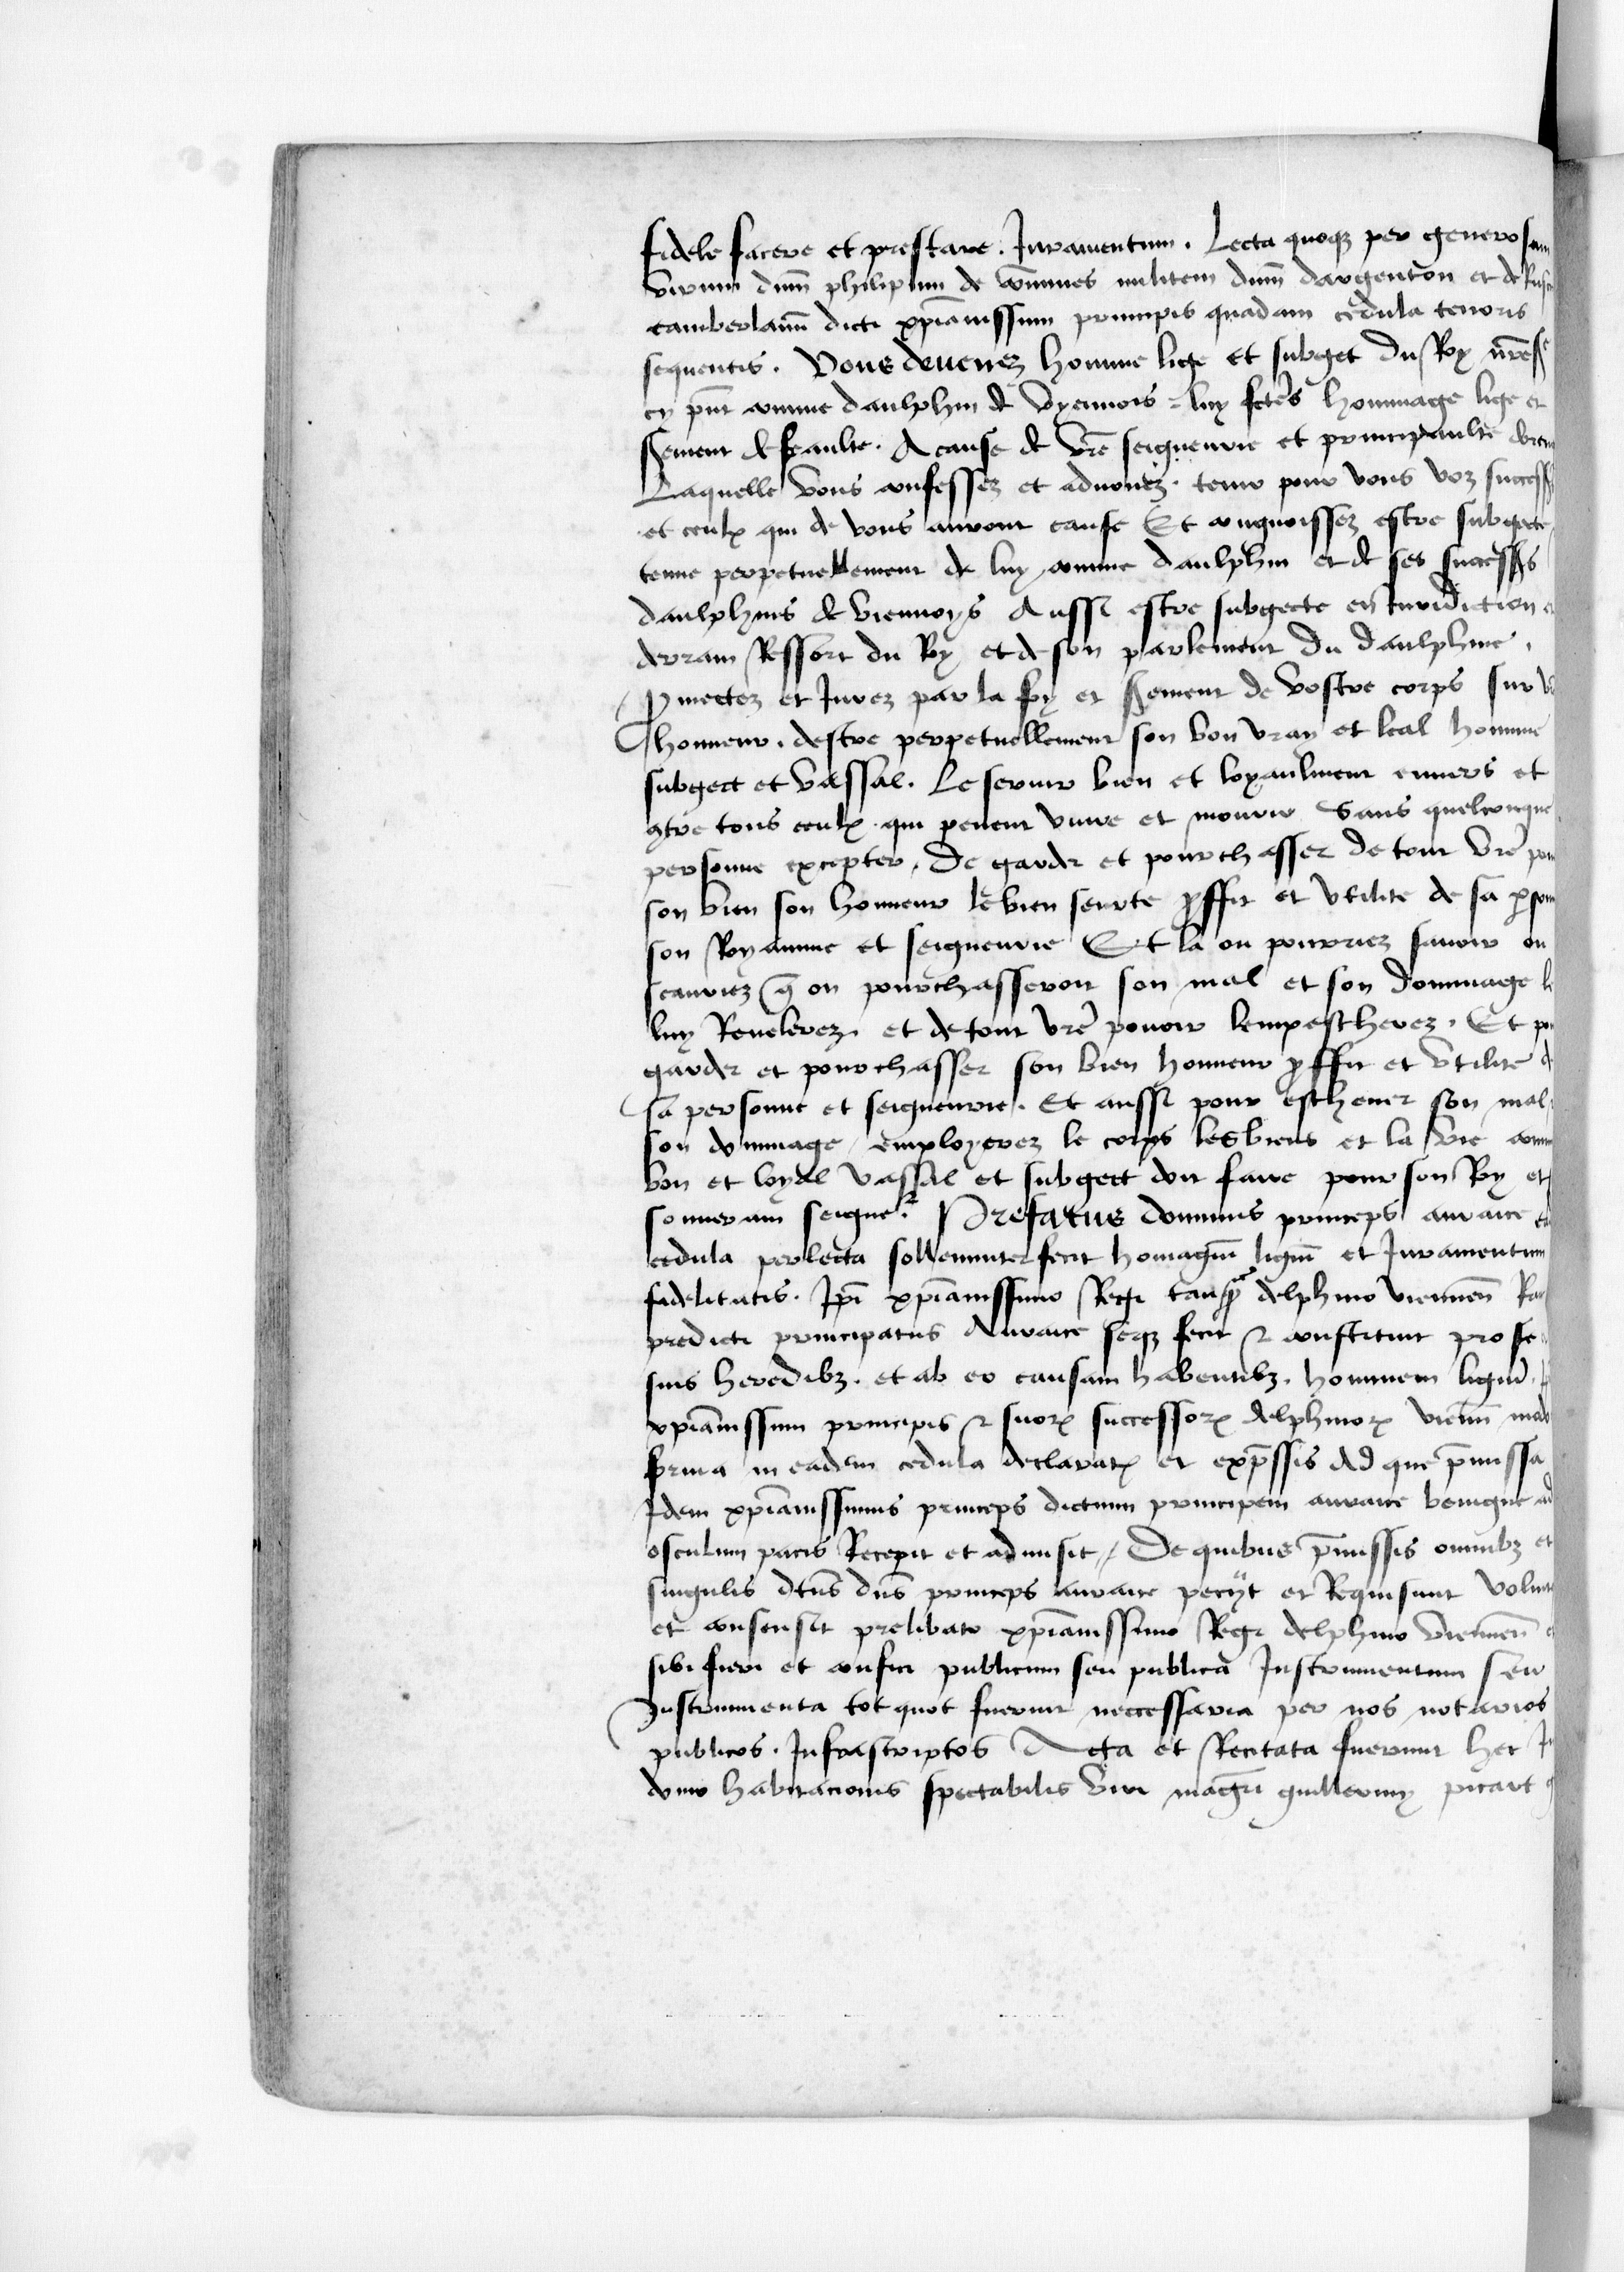 fidele facere et prestare. Juramentum. Lecta quoqz per generosum
virum dnm philipum de commes militem dnm dargenton et de
camberlanum dicti xpianissimi principis quadam cedula tenoris
sequentis. Vous devenez homme lige et subget du Roy nre
cy pnt comme daulphin de Vyennois luy fetes hommage lige et
sement de feaulte. A cause de vre seigneurie et principaulte
Laquelle vous confessez et advouez. tenir pour vous voz
et ceulx qui de vous auront cause Et congnoissez estre subgecte
tenue perpetuellement de luy comme daulphin et de ses success
daulphins de viennoys Aussi estre subgecte en juridiction
derrain Ressort du Roy et de son parlement du daulphine.
Pmectez et Jurez par la foy et sement de vostre corps sur
honneur. destre perpetuellement son bon vray et leal homme
subgect et vassal. Le servir bien et loyaulment envers et
9tre tous ceulx qui pevent vivre et mourir Sans quelconque
personne excepter. De garder et pourchasser de tout vre
son bien son honneur le bien seurte pffit et vtilite de sa
son Royaume et seigneurie Et la ou pourriez savoir ou
scauriez q on pourchasseroit son mal et son dommage
luy Revelerez. et de tout vre povoir lempescherez. Et
garder et pourchasser son bien honneur pffit et vtilite
sa personne et seigneurie. Et aussi pour eschever son mal
son dommage employerez le corps les biens et la vie
bon et loyal vassal et subgect doit faire pour son Roy et
souverain seigner. Prefatus dominus princeps auraice
cedula perlecta sollemniter fecit homagium ligium et Juramentum
fidelitatis. Jpi xpianissimo Regi tanq delphino viennen
predicti principatus Auraice seqz fecit & constituit pro se
suis heredibz. et ab eo causam habentibz. hominem ligium
xpianissimi principis & suorz successorz delphinorz vienn
forma in eadem cedula declaratz et expssis Ad que pmissa
Jdem xpianissimus princeps dictum principem auraice benigne ad
osculum pacis Recepit et admisit. De quibus pmissis omnibz et
singulis dtus dns princeps auraice peciit et Requisivit
et consensit prelibato xpianissimo Regi delphino viennen
sibi fieri et confici publicum seu publica Jnstrumentum seu
Jnstrumenta tot quot fuerint neccessaria per nos notarios
publicos. Jnfrascriptos Acta et Recitata fuerunt hec
domo habitacionis spectabilis viri magri guillermy picart